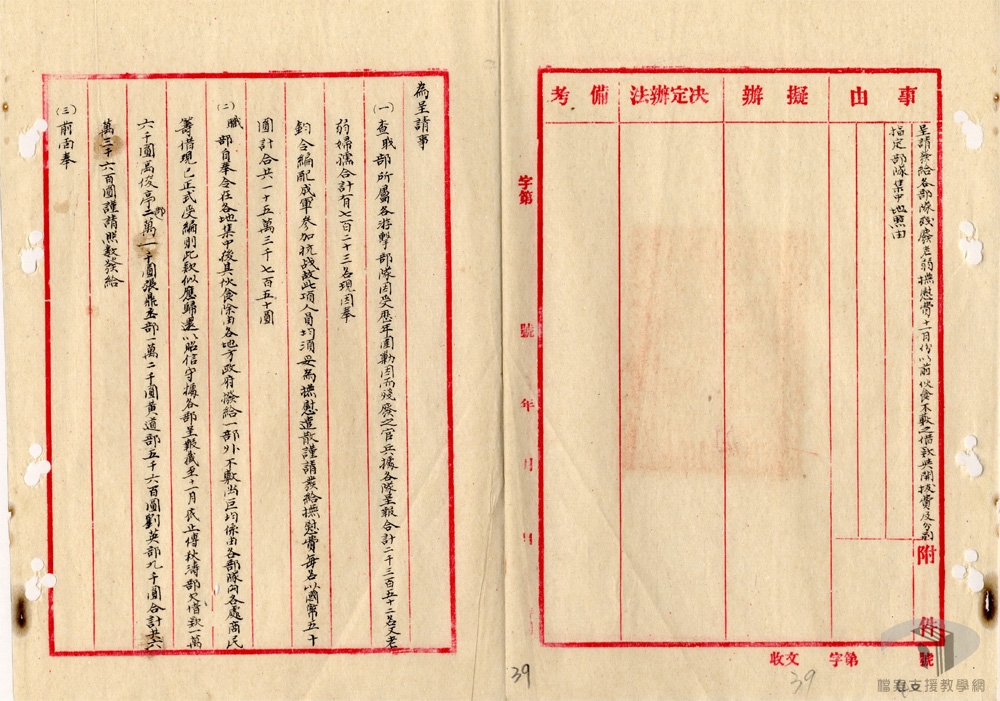 事由
擬辦
決定辦法
備考
呈請發給各部隊殘廢老弱撫慰費十一月份以前伙食不敷之借款與開拔費及分別
指定部隊集中地點由
附件
收文 字第 號
字第 號 年 月 日
為呈請事
(一)查職部所屬各游擊部隊因受歷年圍剿因而殘廢之官兵據各隊呈報合計二千三百五十二名又老
弱婦孺合計有七百二十三名現因奉
鈞令編配成軍參加抗战故此項人員均須妥為撫慰遣散謹請發給撫慰費每名以國幣五十
圓計合共一十五萬三千七百五十圓
(二)職部自奉令在各地集中後其伙食除由各地方政府發給一部外不敷尚巨均係由各部隊向各處商民
籌借現已正式受編則此款似應歸還以昭信守據各部呈報截至十一月底止傅秋濤部欠借款一萬
六千圓高俊亭部二萬一千圓張鼎丞部一萬二千圓黃道部五千六百圓劉英部九千圓合計共六
萬三千六百圓謹請照數發給
(三)前面奉
39
39
檔案支援教學網